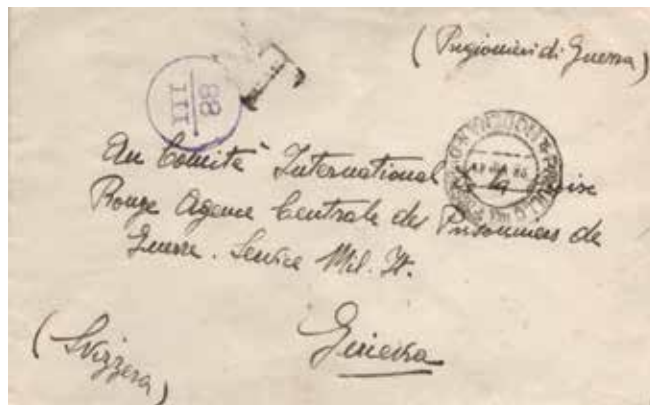 (Prigionieri di Guerra)
88
III
Au Comité International de la Croix
Rouge Agence Centrale des Prisonniers de
Guerre. Service Mil. It.
Ginevra
(Svizzera)